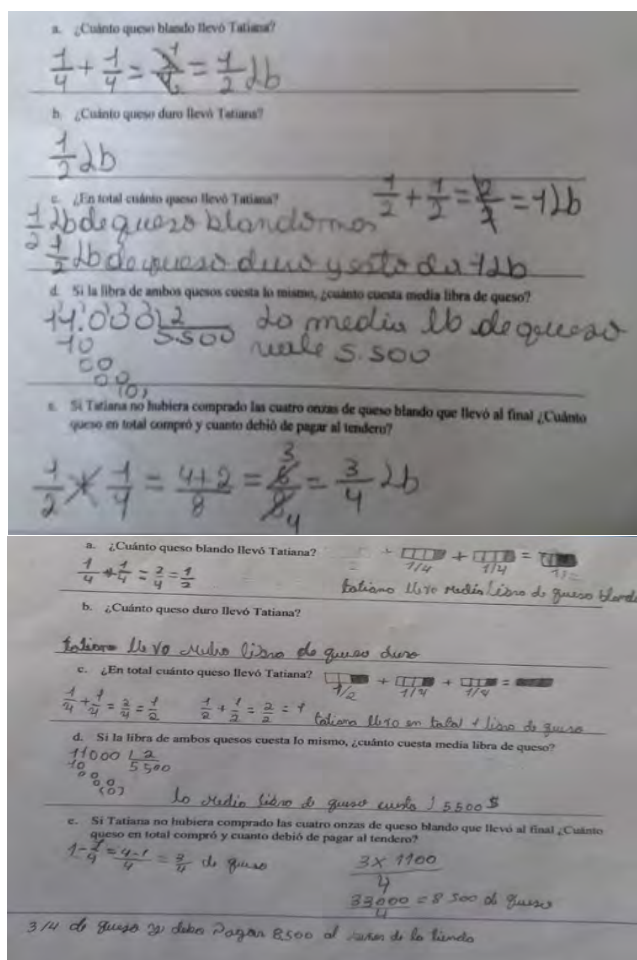 a. ¿Cuánto queso blando llevó Tatiana?
1/4 + 1/4 = 2/4 = 1/2 Lb
b. ¿Cuánto queso duro llevó Tatiana?
1/2 Lb
c. ¿En total cuánto queso llevó Tatiana?
1/2 + 1/2 = 2/2 = 1 Lb
1/2 Lb de queso blando mas
1/2 Lb de queso duro y esto da 1 Lb
d. Si la libra de ambos quesos cuesta lo mismo, ¿cuánto cuesta media libra de queso?
11.000 2 La media lb de queso
10 5.500 vale 5.500
00
00
(0)
e. Si Tatiana no hubiera comprado las cuatro onzas de queso blando que llevó al final ¿Cuánto
queso en total compró y cuanto debió de pagar al tendero?
3
1/2 + 1/4 = 4+2/8 = 6/8 = 3/4 Lb
4
a. ¿Cuánto queso blando llevó Tatiana?
+ 1/4 + 1/4 =
1/4 + 1/4 = 2/4 = 1/2
tatiana llevo media libra de queso blando
b. ¿Cuánto queso duro llevó Tatiana?
tatiana llevo media libra de queso duro
c. ¿En total cuánto queso llevó Tatiana?
1/2 + 1/4 + 1/4 =
1/4 + 1/4 = 2/4 = 1/2 1/2 + 1/2 = 2/2 = 1 tatiana llevo en total 1 libra de queso
d. Si la libra de ambos quesos cuesta lo mismo, ¿cuánto cuesta media libra de queso?
11000 2
10 5500
00
00
(0)
la media libra de queso cuesta 5500 $
e. Si Tatiana no hubiera comprado las cuatro onzas de queso blando que llevó al final ¿Cuánto
queso en total compró y cuanto debió de pagar al tendero?
1 - 1/4 = 4-1/4 = 3/4 de queso
3 x 1100
4
33000/4 = 8 500 de queso
3/4 de queso y debe Pagar 8500 al de la tienda